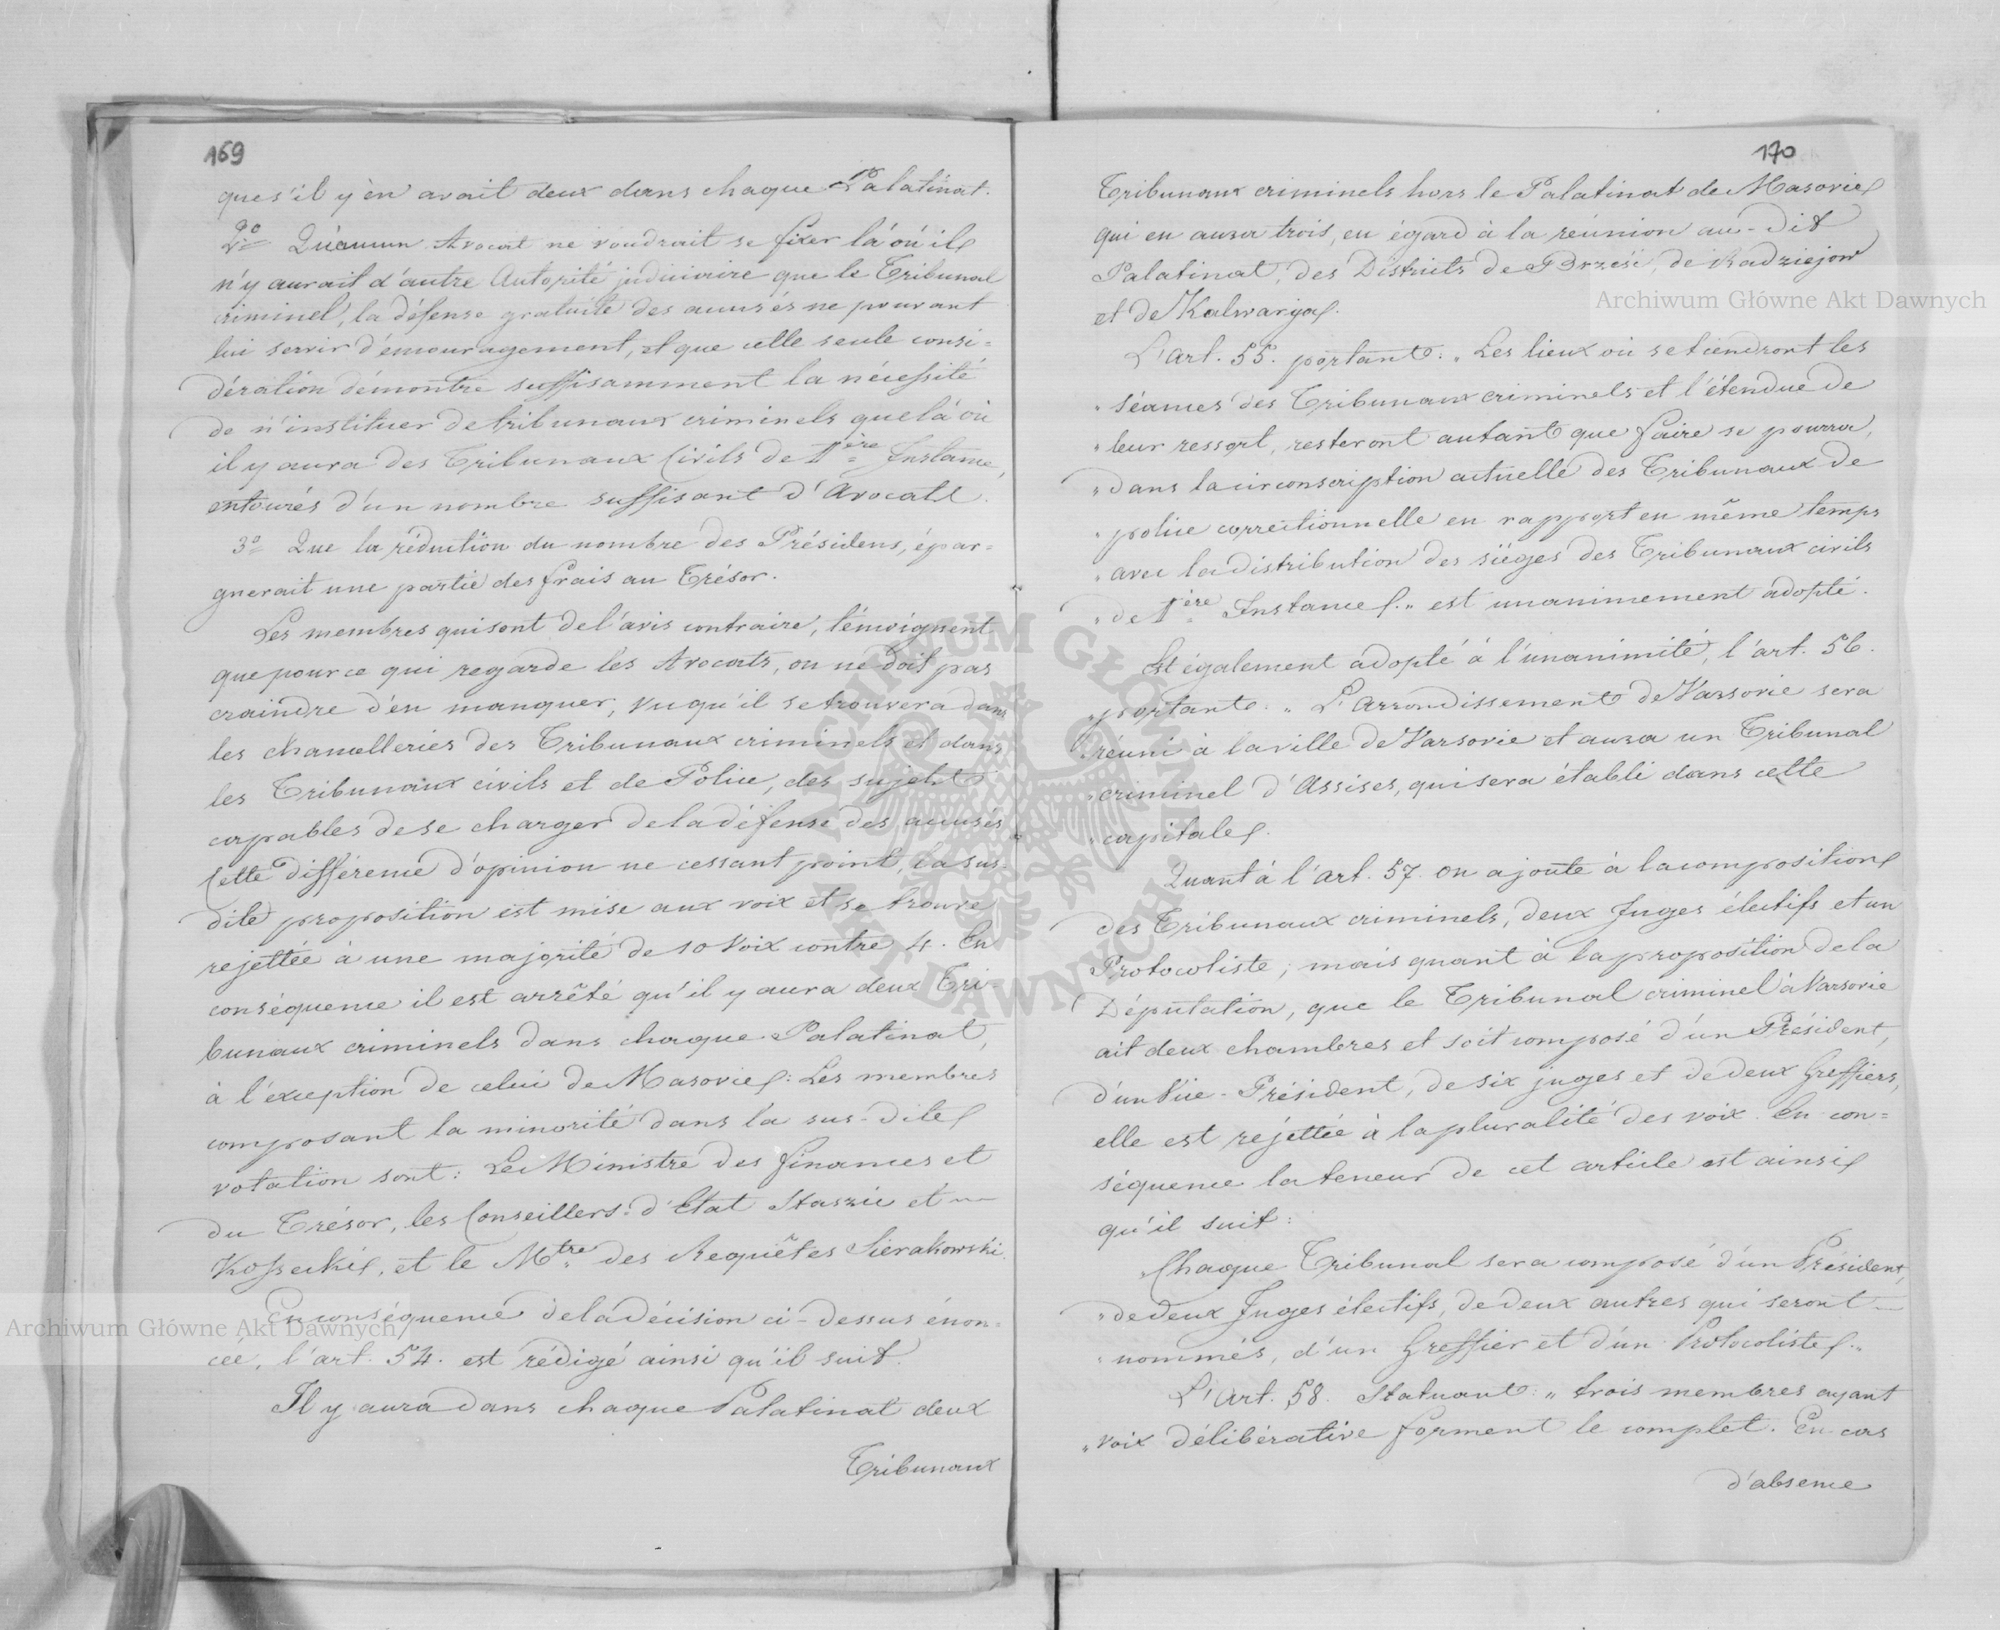 169
que s'il y en avait deux dans chaque Palatinat.
2º Qu'aucun Avocat ne voudrait se fixer là où il
n'y aurait d'autre Autorité judiciaire que le Tribunal
criminel, la défense gratuite des accusés ne pouvant
lui servir d'encouragement, et que celle seule consi=
dération démontre suffisamment la nécessité
de n'instituer de tribunaux criminels que là où
il y aura des Tribunaux Civils de 1ère Instance,
entourés d'un nombre suffisant d'Avocats.
3º Que la réduction du nombre des Présidens, épar=
gnerait une partie des frais au Trésor.
Les membres qui sont de l'avis contraire, témoignent
que pour ce qui regarde les Avocats, on ne doit pas
craindre d'en manquer, vu qu'il se trouvera dans
les chancelleries des Tribunaux criminels et dans
les Tribunaux civils et de Police, des sujets
capables de se charger de la défense des accusés
Cette différence d'opinion ne cessant point, la sus-
dite proposition est mise aux voix et se trouve
rejettée à une majorité de 10 voix contre 4. En
conséquence il est arrêté qu'il y aura deux Tri-
bunaux criminels dans chaque Palatinat,
à l'exception de celui de Masovie: Les membres
composant la minorité dans la sus-dite
votation sont: Le Ministre des finances et
du Trésor, les Conseillers d'Etat Staszic et
Kossecki, et le Mtre des Requêtes Sierakowski.
En conséquence de la décision ci-dessus énon=
cée, l'art. 54. est rédigé ainsi qu'il suit.
Il y aura dans chaque Palatinat deux
Tribunaux
170
Tribunaux criminels hors le Palatinat de Masovie
qui en aura trois, eu égard à la réunion au-dit
Palatinat, des Districts de Brześć, de Radziejow
et de Kalwarya.
L'art. 55. portant: „ Les lieux où se tiendront les
„ séances des Tribunaux criminels et l'étendue de
„ leur ressort, resteront autant que faire se pourra,
„ dans la circonscription actuelle des Tribunaux de
„ police correctionnelle en rapport en même temps
„ avec la distribution des sièges des Tribunaux civils
„ de 1ère Instance." est unanimement adopté.
Est également adopté à l'unanimité, l'art. 56.
„ portant: „ L'Arrondissement de Varsovie sera
„ réuni à la ville de Varsovie et aura un Tribunal
„ criminel d'Assises, qui sera établi dans cette
„ capitale.
Quant à l'art. 57. on ajoute à la composition
des Tribunaux criminels, deux Juges électifs et un
Protocoliste; mais quant à la proposition de la
Députation, que le Tribunal criminel à Varsovie
ait deux chambres et soit composé d'un Président,
d'un Vice-Président, de six juges et de deux Greffiers,
elle est rejettée à la pluralité des voix. En con=
séquence la teneur de cet article est ainsi
qu'il suit:
„ Chaque Tribunal sera composé d'un Président,
„ de deux Juges électifs, de deux autres qui seront
„ nommés, d'un Greffier et d'un Protocoliste."
L'Art. 58. Statuant: „ trois membres ayant
„ voix délibérative forment le complet. En cas
d'absence
Archiwum Główne Akt Dawnych
Archiwum Główne Akt Dawnych
ARCHIWUM GŁÓWNE AKT DAWNYCH